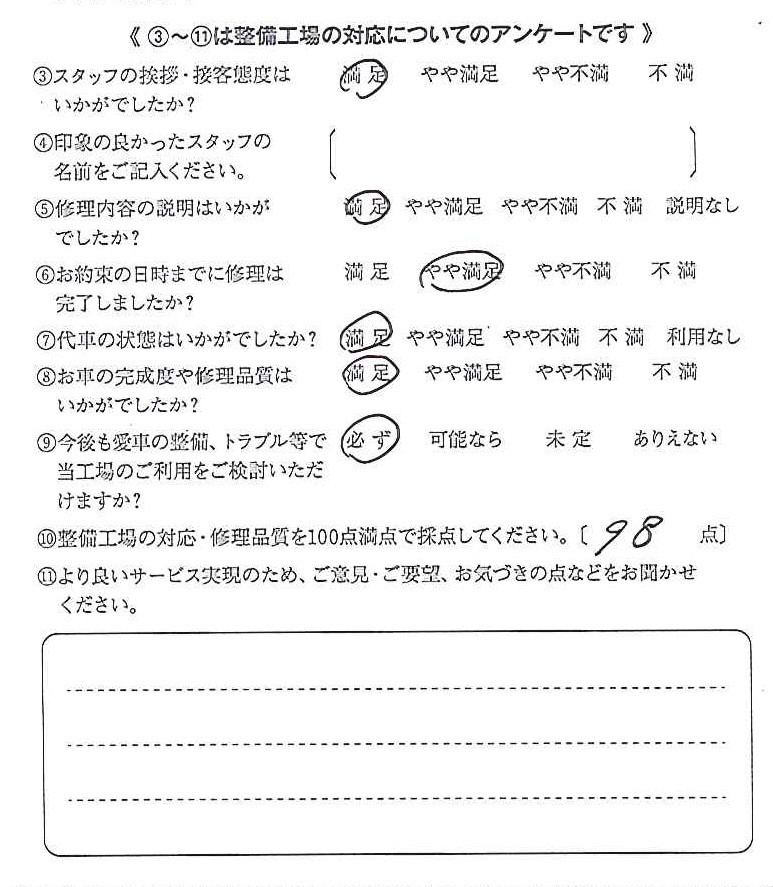 《 ③～⑪は整備工場の対応についてのアンケートです 》
③スタッフの挨拶・接客態度は 満 足 やや満足 やや不満 不 満
いかがでしたか?
④印象の良かったスタッフの
名前をご記入ください。
⑤修理内容の説明はいかが 満 足 やや満足 やや不満 不 満 説明なし
でしたか?
⑥お約束の日時までに修理は 満 足 やや満足 やや不満 不 満
完了しましたか?
⑦代車の状態はいかがでしたか? 満 足 やや満足 やや不満 不 満 利用なし
⑧お車の完成度や修理品質は 満 足 やや満足 やや不満 不 満
いかがでしたか?
⑨今後も愛車の整備、トラブル等で 必 ず 可能なら 未 定 ありえない
当工場のご利用をご検討いただ
けますか?
⑩整備工場の対応・修理品質を100点満点で採点してください。〔 98 点〕
⑪より良いサービス実現のため、ご意見・ご要望、お気づきの点などをお聞かせ
ください。